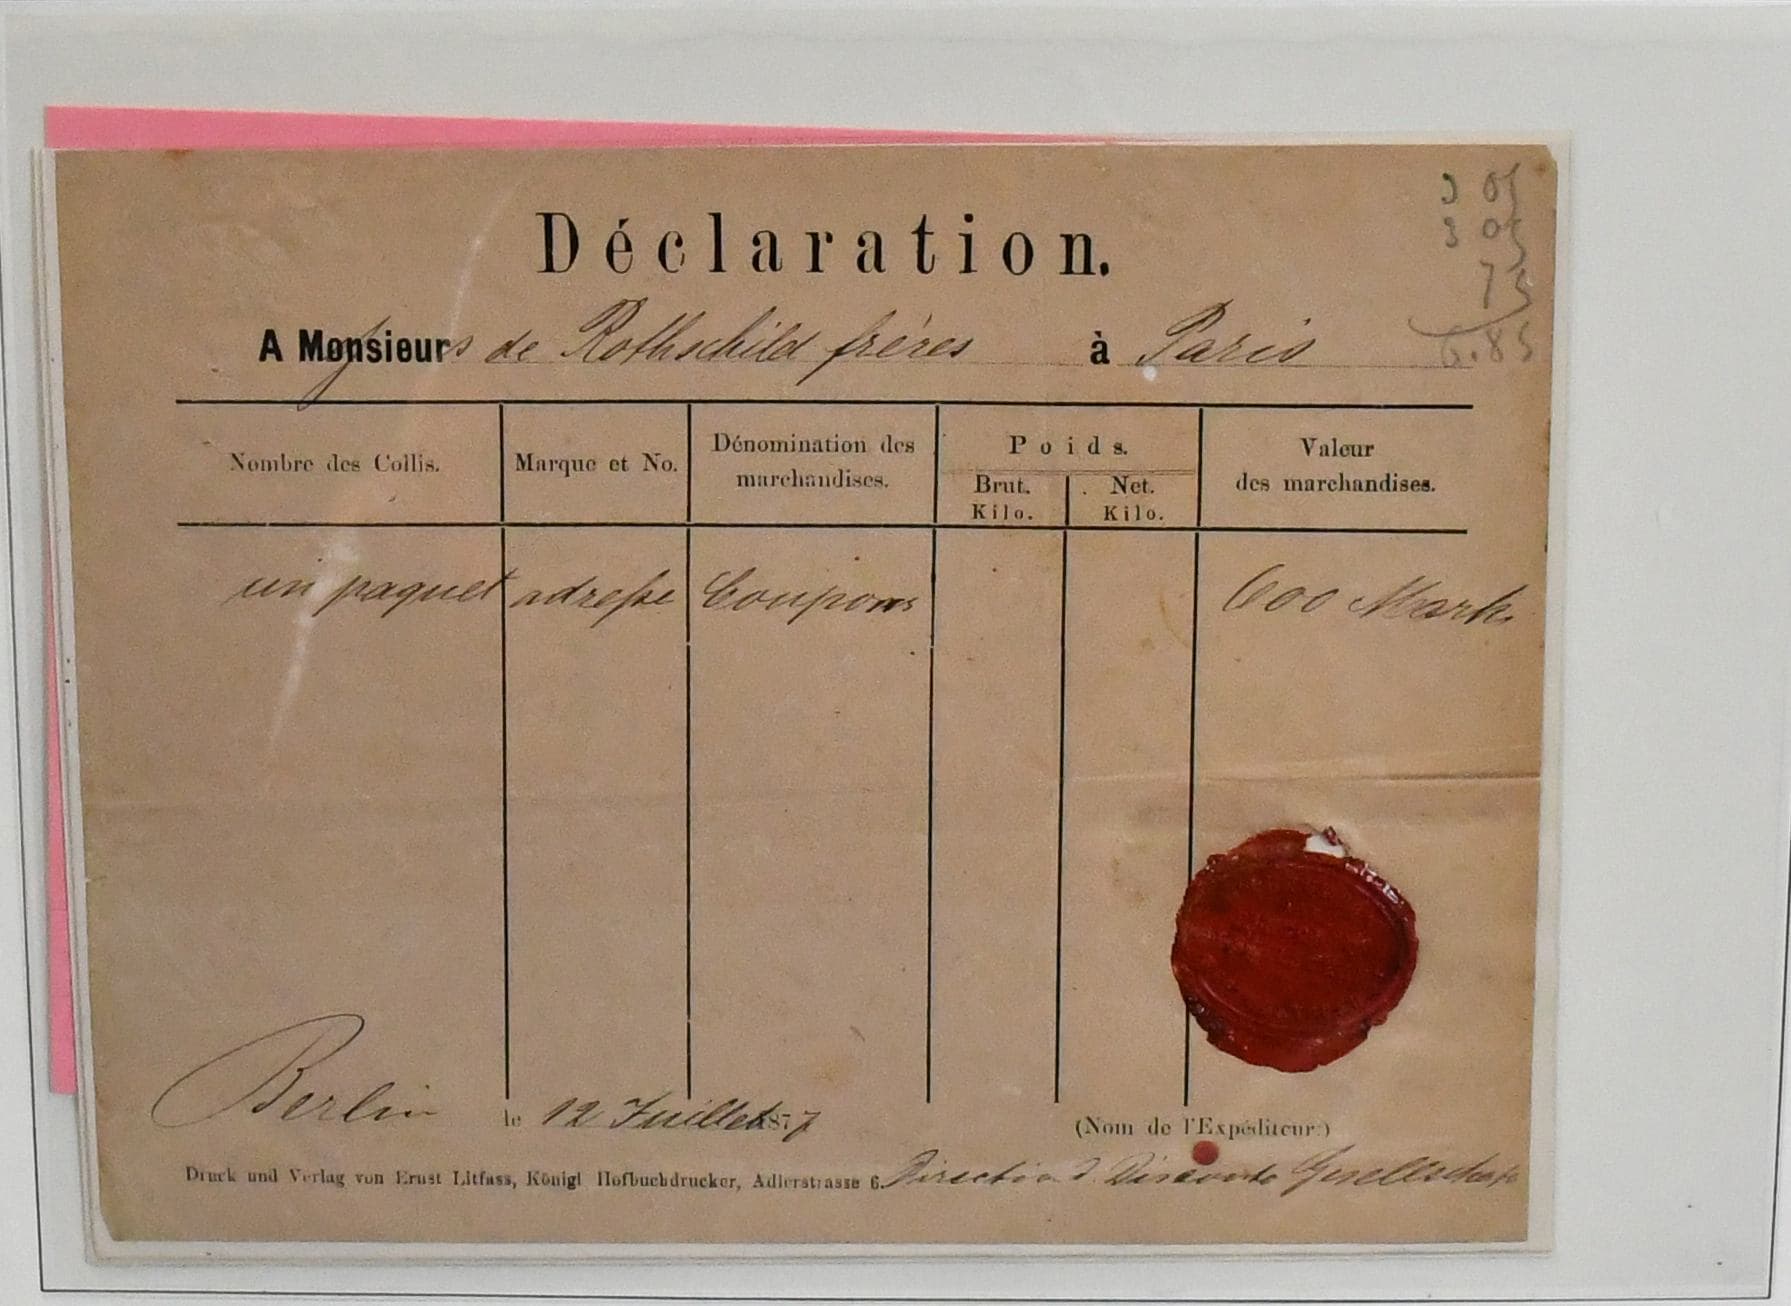 Déclaration.
3 05
3 05
75
6.85
A Monsieurs de Rothschild frères à Paris
Nombre des Collis. Marque et No. Dénomination des marchandises. Poids. Brut. Kilo. Net. Kilo. Valeur des marchandises.
un paquet adresse Coupons 600 Mark.
Berlin le 12 Juillet 1877
(Nom de l'Expéditeur:)
Druck und Verlag von Ernst Litfass, Königl Hofbuchdrucker, Adlerstrasse 6.
Direction d. Disconto Gesellschaft